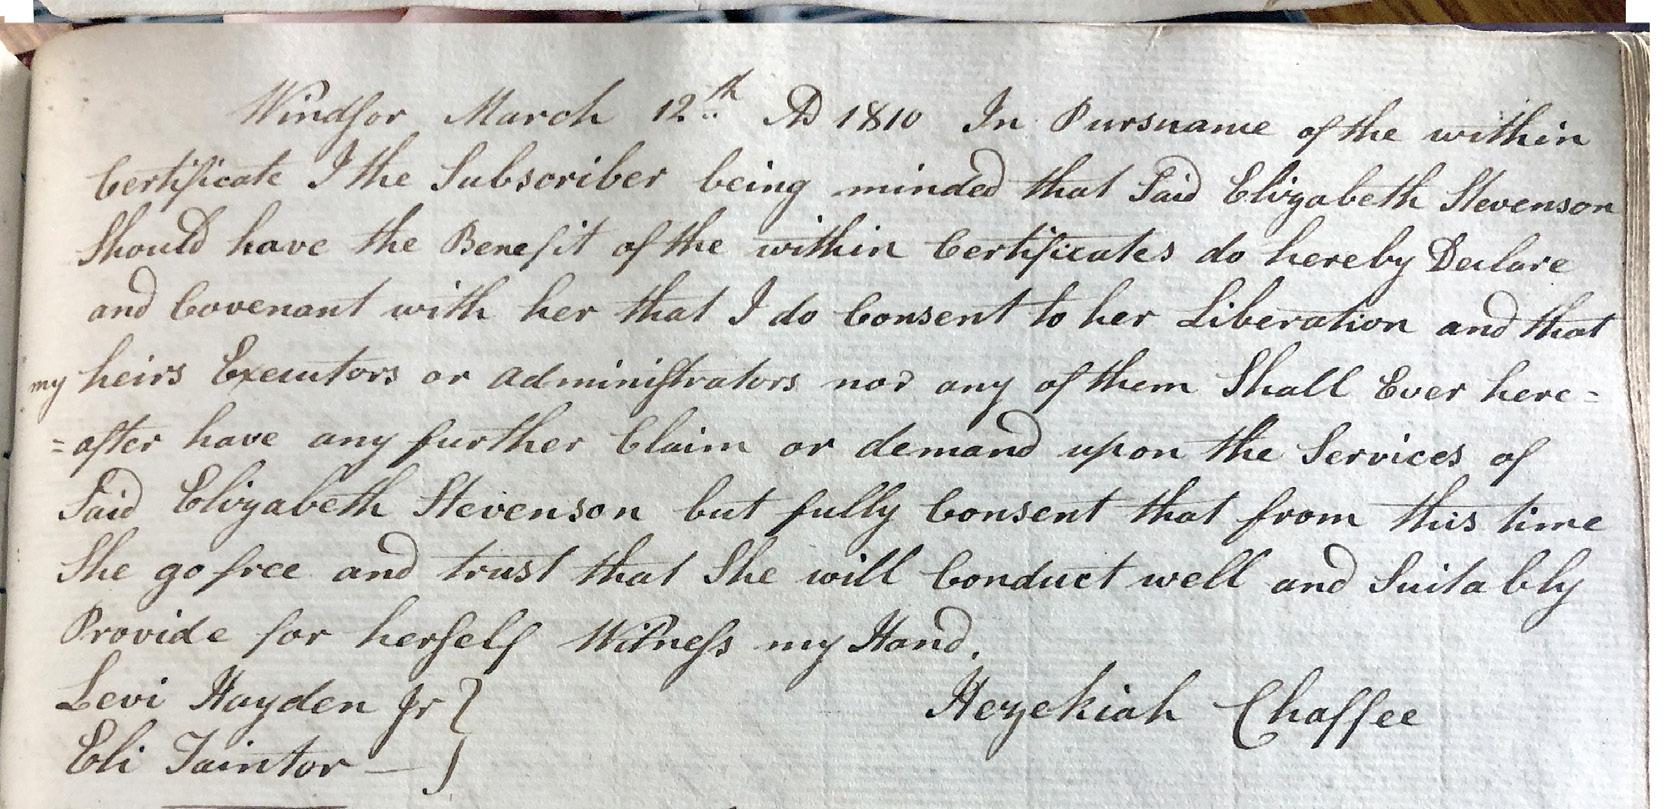 Windsor March 12th AD 1810 In Pursuance of the within
Certificate I the Subscriber being minded that Said Elizabeth Stevenson
Should have the Benefit of the within Certificates do hereby Declare
and Covenant with her that I do Consent to her Liberation and that
my heirs Executors or administrators nor any of them Shall Ever here=
=after have any further Claim or demand upon the Services of
Said Elizabeth Stevenson but fully Consent that from this time
She go free and trust that She will Conduct well and Suitably
Provide for herself Witness my Hand.
Levi Hayden Jr } Hezekiah Chaffee
Eli Taintor — }